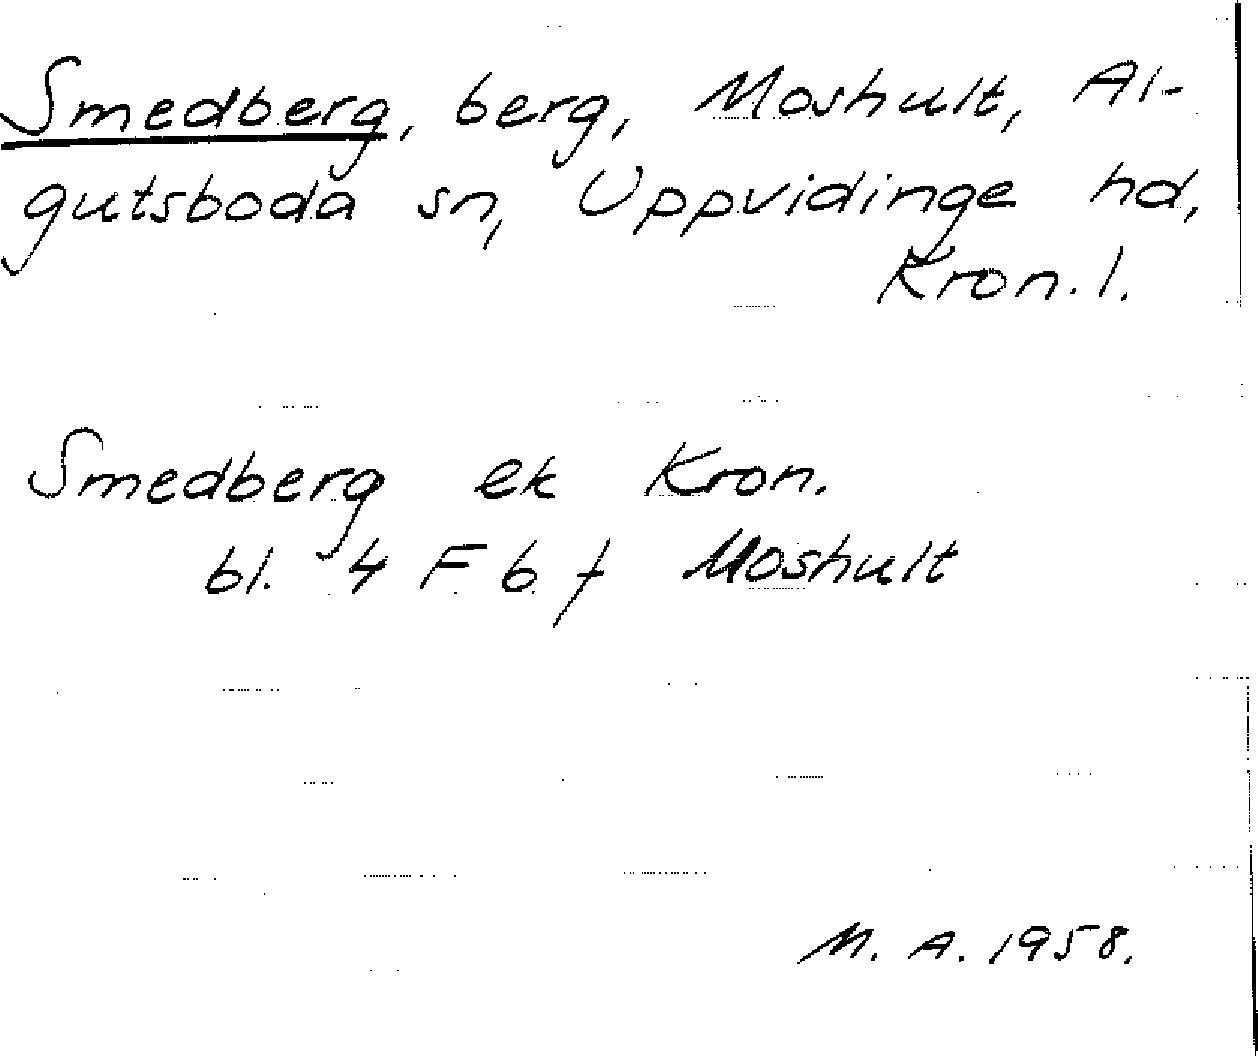 Smedberg, berg, Moshult, Al-
gutsboda sn, Uppvidinge hd,
Kron. l.
Smedberg ek Kron.
bl. 4 F 6 f Moshult
M. A. 1958.